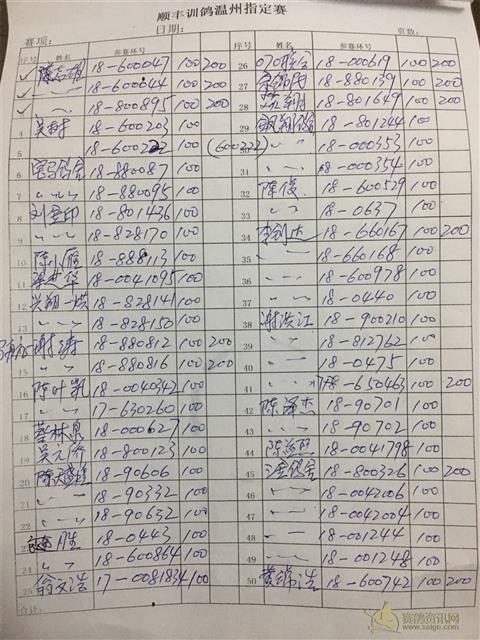 顺丰训鸽温州指定赛
赛项: 日期: 页数:
序号 姓名 参赛环号 序号 姓名 参赛环号
18-600047 100 200
18-600044 100 200
18-800895 100 200
4 18-600203 100
5 18-600222 100 (600222)
6 18-880087 100
7 〃 18-880095 100
8 刘金印 18-801436 100
9 〃 18-828170 100
10 陈小雁 18-888113 100
11 梁进华 18-0041095 100
12 兴翔一族 18-828141 100
13 〃 18-828150 100
14 谢涛 18-880812 100 200
15 〃 18-880816 100 200
16 陈叶凯 18-0040342 100
17 〃 17-630260 100
18 蔡林泉 18-000627 100
19 吴元乔 18-800123 100
20 18-90606 100
21 〃 18-90332 100
22 〃 18-90632 100
23 胜 18-0443 100
24 〃 18-600864 100
25 翁文浩 17-0081834 100
合计:
26 18-000619 100 200
27 18-880139 100 200
28 18-801649 100 200
29 18-801244 100
30 〃 18-000353 100
31 〃 18-000354 100
32 陈俊 18-600529 100
33 〃 18-0637 100
34 李剑杰 18-660167 100 200
35 〃 18-660168 100
36 〃 18-600978 100
37 〃 18-0440 100
38 谢洪江 18-900210 100
39 〃 18-812762 100
40 〃 18-0475 100
41 〃 18-650463 100 200
42 陈泽杰 18-90701 100
43 〃 18-90702 100
44 18-0041798 100
45 18-800326 100 200
46 〃 18-0042006 100
47 〃 18-0042004 100
48 〃 18-001244 100
49 〃 18-001248 100
50 黄锦浩 18-600742 100 200
赛鸽资讯网
www.saige.com